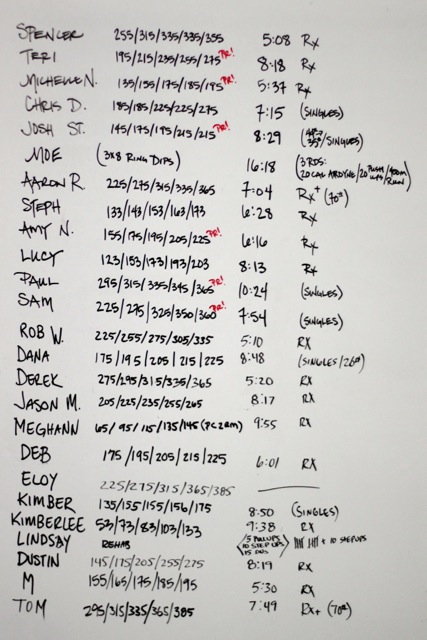 SPENCER 255/315/335/335/355 5:08 RX
TERI 195/215/235/255/275 PR! 8:18 RX
MICHELLE N. 135/155/175/185/195 PR! 5:37 RX
CHRIS D. 185/185/225/225/275 7:15 (SINGLES)
JOSH ST. 145/175/195/215/215 PR! 8:29 /SINGLES)
MOE (3x8 RING DIPS) 16:18 (3 RDS: 20 CAL AIRDYNE/20 PUSH UPS/400m RUN)
AARON R. 225/275/315/335/365 7:04 RX+ (70#)
STEPH 133/143/153/163/173 6:28 RX
AMY N. 155/175/195/205/225 PR! 6:16 RX
LUCY 123/153/173/193/203 8:13 RX
PAUL 295/315/335/345/365 PR! 10:24 (SINGLES)
SAM 225/275/325/350/360 PR! 7:54 (SINGLES)
ROB W. 225/255/275/305/335 5:10 RX
DANA 175/195/205/215/225 8:48 (SINGLES/26#)
DEREK 275/295/315/335/365 5:20 RX
JASON M. 205/225/235/255/265 8:17 RX
MEGHANN 65/95/115/135/145 (PC 2RM) 9:55 RX
DEB 175/195/205/215/225 6:01 RX
ELOY 225/275/315/365/385
KIMBER 135/155/155/156/175 8:50 (SINGLES)
KIMBERLEE 53/73/83/103/133 9:38 RX
LINDSAY REHAB 5 PULLUPS 10 STEP UPS 15 + 10 STEPUPS
DUSTIN 145/175/205/255/275 8:19 RX
M 155/165/175/185/195 5:30 RX
TOM 295/315/335/365/385 7:49 RX+ (70#)